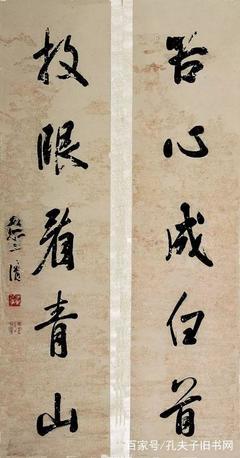 苦心成白首
放眼看青山
百家号/孔夫子旧书网